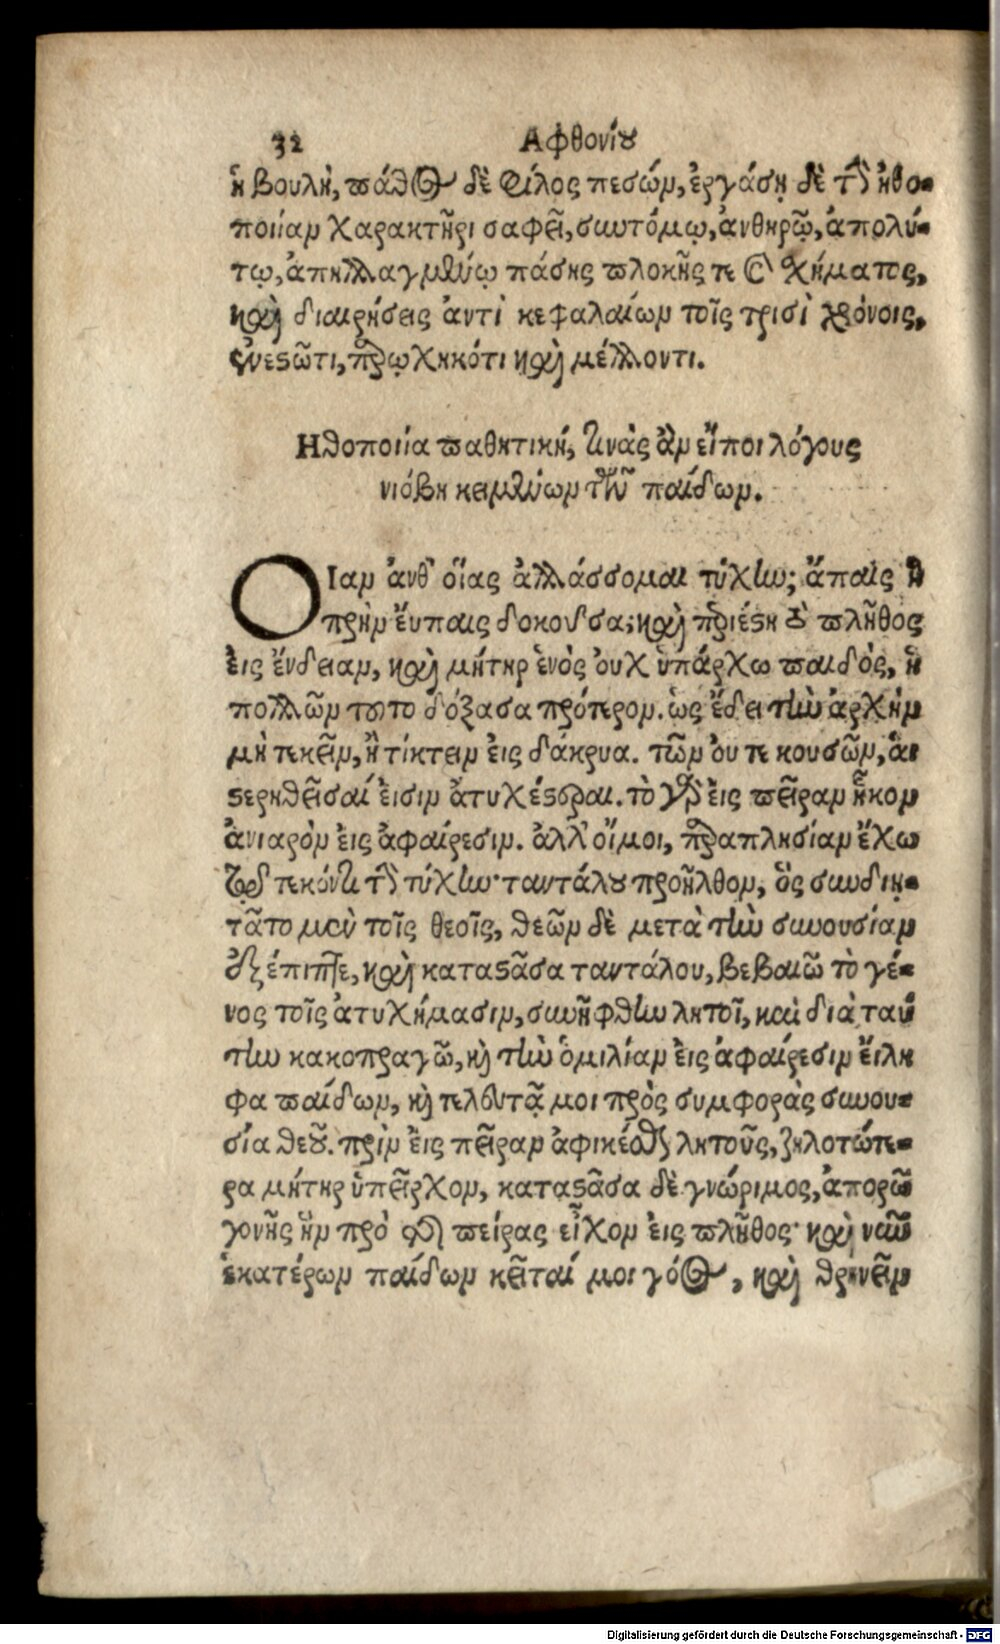 32 Αφθονίου
ἡ βουλὴ, πάθος δὲ φίλος πεσών, ἐργάσῃ δὲ τὴν ἠθο-
ποιίαν χαρακτῆρι σαφεῖ, συντόμῳ, ἀνθηρῷ, ἀπολύ-
τῳ, ἀπηλλαγμένῳ πάσης πλοκῆς τε καὶ σχήματος,
καὶ διαιρήσεις ἀντὶ κεφαλαίων τοῖς τρισὶ χρόνοις,
ἐνεστῶτι, παρῳχηκότι καὶ μέλλοντι.
Ηθοποιία παθητική, τίνας ἂν εἴποι λόγους
νιόβη κειμένων τῶν παίδων.
ΟΙαν ἀνθ' οἵας ἀλλάσσομαι τύχην; ἄπαις ἡ
πρὴν ἔυπαις δοκοῦσα; καὶ περιέστη τὸ πλῆθος
ἐις ἔνδειαν, καὶ μήτηρ ἑνὸς ὀυχ ὑπάρχω παιδός, ἡ
πολλῶν τοῦτο δόξασα πρότερον. ὡς ἔδει τὴν ἀρχὴν
μὴ τεκεῖν, ἢ τίκτειν ἐις δάκρυα. τῶν ὀυ τεκουσῶν, ἁι
στερηθεῖσαί ἐισιν ἀτυχέστεραι. τὸ γὰρ ἐις πεῖραν ἧκον
ἀνιαρὸν ἐις ἀφαίρεσιν. ἀλλ' οἴμοι, παραπλησίαν ἔχω
τῷ τεκόντι τὴν τύχην· ταντάλου προῆλθον, ὃς συνδιῃ-
τᾶτο μὲν τοῖς θεοῖς, θεῶν δὲ μετὰ τὴν συνουσίαν
ἐξέπιπτε, καὶ καταστᾶσα ταντάλου, βεβαιῶ τὸ γέ-
νος τοῖς ἀτυχήμασιν, συνήφθην λητοῖ, καὶ διὰ ταύ
την κακοπραγῶ, καὶ τὴν ὁμιλίαν ἐις ἀφαίρεσιν ἔιλη
φα παίδων, καὶ τελευτᾷ μοι πρὸς συμφορὰς συνου-
σία θεοῦ. πρὶν ἐις πεῖραν ἀφικέσθαι λητοῦς, ζηλοτώτε-
ρα μήτηρ ὑπεῖρχον, καταστᾶσα δὲ γνώριμος, ἀπορῶ
γονῆς ἣν πρὸ τῆς πείρας εἶχον ἐις πλῆθος· καὶ νῦν
ἑκατέρων παίδων κεῖταί μοι γόος, καὶ θρηνεῖν
Digitalisierung gefördert durch die Deutsche Forschungsgemeinschaft - DFG